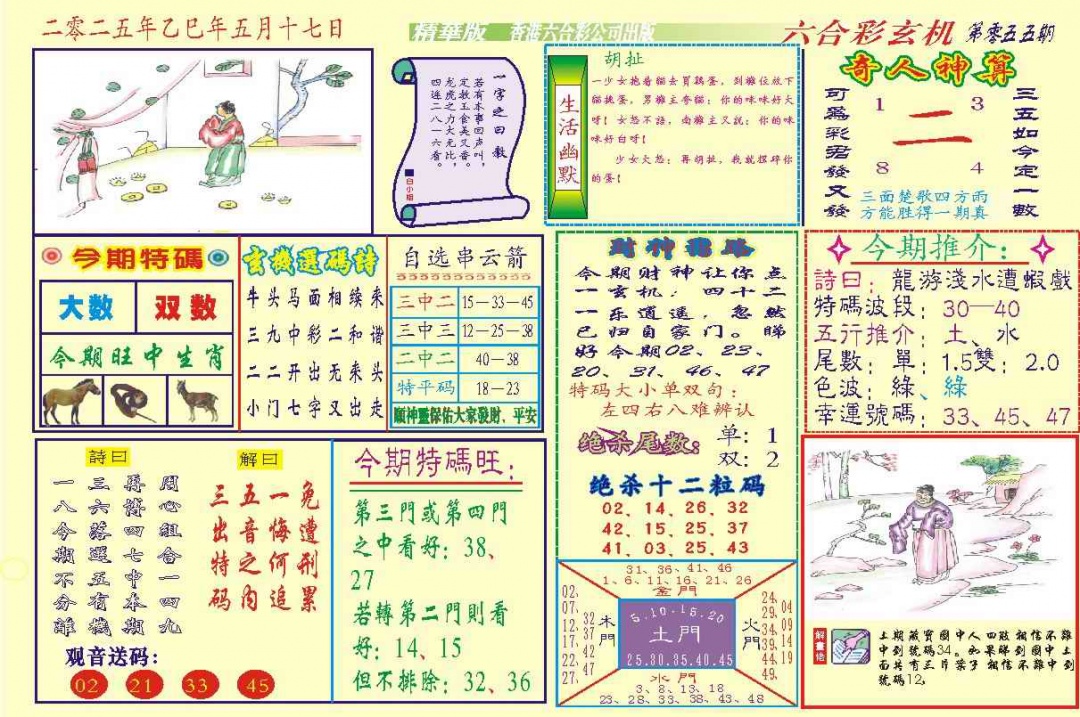 二零二五年乙巳年五月十七日
精華版 香港六合彩公司出版
六合彩玄机 第零五五期
一字之曰数
若有本事回声叫，
定教玉食美又香。
龙虎之力大无比，
四连二八一六看。
白小姐
生活幽默
胡扯
一少女抱着貓去買鷄蛋，到攤位放下
貓挑蛋，男攤主夸貓：你的咪咪好大
呀！女怒不語，南攤主又説：你的咪
咪好白呀！
少女大怒：再胡扯，我就捏碎你
的蛋！
奇人神算
可爲彩君發又發
1 3
二
8 4
三五如今定一數
三面楚歌四方雨
方能胜得一期真
今期特碼
大数 双数
今期旺中生肖
玄機選碼詩
牛头马面相续来
三九中彩二和谐
二二开出无来头
小门七字又出走
自选串云箭
三中二 15－33－45
三中三 12－25－38
二中二 40－38
特平码 18－23
順神靈保佑大家發財、平安
今期财神让你点
一玄机：四十二
一乐逍遥，忽然
已归自家门。睇
好今期02、23、
20、31、46、47
特码大小单双句：
左四右八难辨认
绝杀尾数： 单：1
双：2
绝杀十二粒码
02、14、26、32
42、15、25、37
41、03、25、43
今期推介：
詩曰：龍游淺水遭蝦戲
特碼波段：30—40
五行推介：土、水
尾數：單：1.5雙：2.0
色波：綠、綠
幸運號碼：33、45、47
詩曰
周心組合一四九
再博四七中本期
三六落選五有機
一八今期不分離
解曰
免遭刑累
一悔何追
五音之内
三出特码
观音送码：
02 21 33 45
今期特碼旺：
第三門或第四門
之中看好：38、
27
若轉第二門則看
好：14、15
但不排除：32、36
31、36、41、46
1、6、11、16、21、26
金門
02、07、12、17、22、27
32、37、42、47
木門
5.10-15.20
土門
25.30.35.40.45
火門
24、29、34、39、44、49
04、09、14、19
水門
3、8、13、18
23、28、33、38、43、48
解畫佬
上期藏寶圖中人四肢相信不難
中到號碼34。如果睇到圖中上
面共有三片葉子相信不難中到
號碼12，